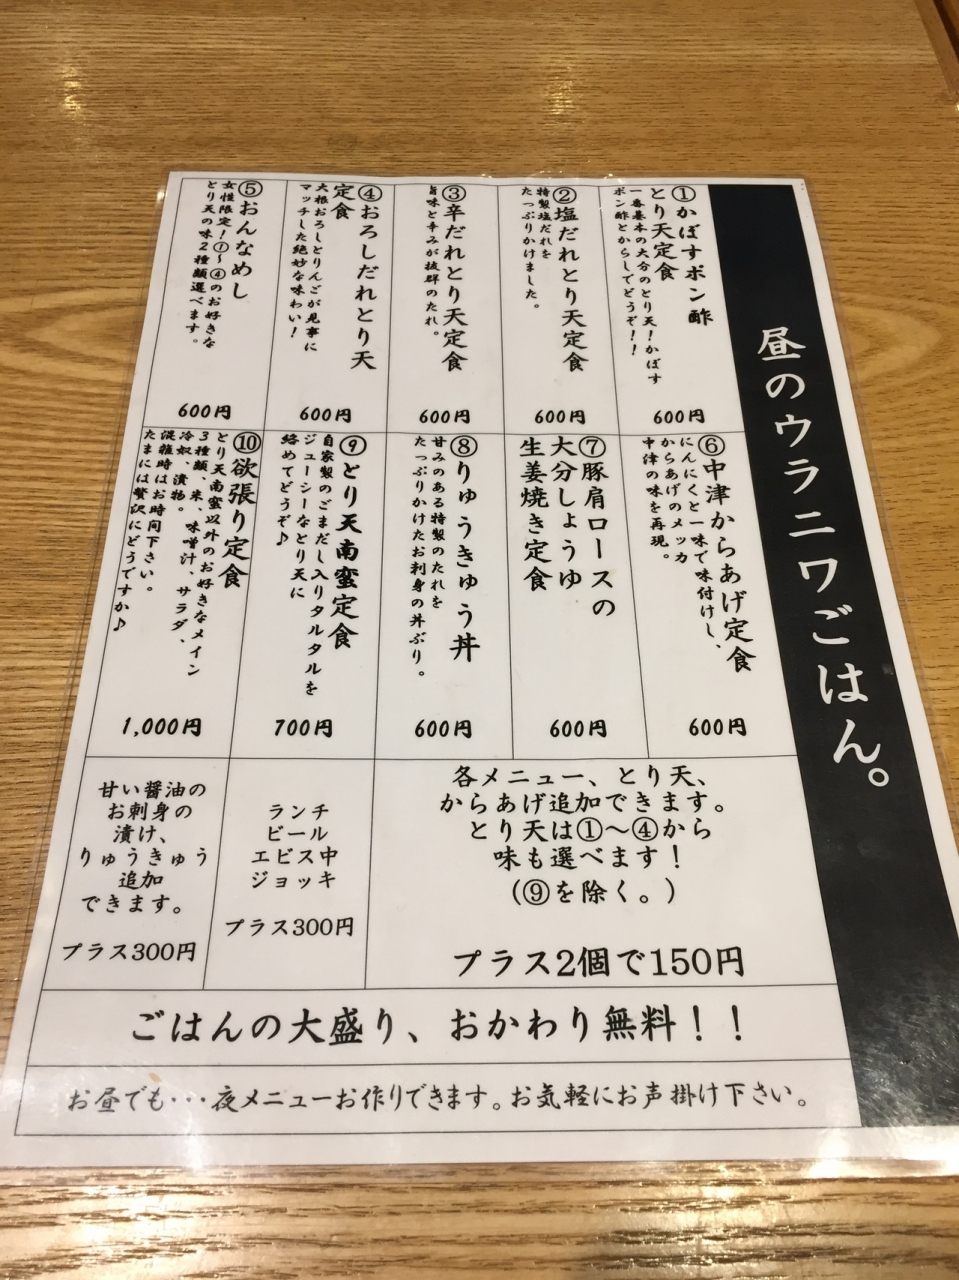 昼のウラニワごはん。
①かぼすポン酢
とり天定食
一番基本の大分のとり天！かぼす
ポン酢とからしでどうぞ！！
600円
②塩だれとり天定食
特製塩だれを
たっぷりかけました。
600円
③辛だれとり天定食
旨味と辛みが抜群のたれ。
600円
④おろしだれとり天
定食
大根おろしとりんごが見事に
マッチした絶妙な味わい！
600円
⑤おんなめし
女性限定！①〜④のお好きな
とり天の味２種類選べます。
600円
⑥中津からあげ定食
にんにくと一味で味付けし、
からあげのメッカ
中津の味を再現。
600円
⑦豚肩ロースの
大分しょうゆ
生姜焼き定食
600円
⑧りゅうきゅう丼
甘みのある特製のたれを
たっぷりかけたお刺身の丼ぶり。
600円
⑨とり天南蛮定食
自家製のごまだし入りタルタルを
ジューシーなとり天に
絡めてどうぞ♪
700円
⑩欲張り定食
とり天南蛮以外のお好きなメイン
３種類、米、味噌汁、サラダ、
冷奴、漬物。
混雑時はお時間下さい。
たまには贅沢にどうですか♪
1,000円
各メニュー、とり天、
からあげ追加できます。
とり天は①〜④から
味も選べます！
（⑨を除く。）
プラス2個で150円
ランチ
ビール
エビス中
ジョッキ
プラス300円
甘い醤油の
お刺身の
漬け、
りゅうきゅう
追加
できます。
プラス300円
ごはんの大盛り、おかわり無料！！
お昼でも・・・夜メニューお作りできます。お気軽にお声掛け下さい。